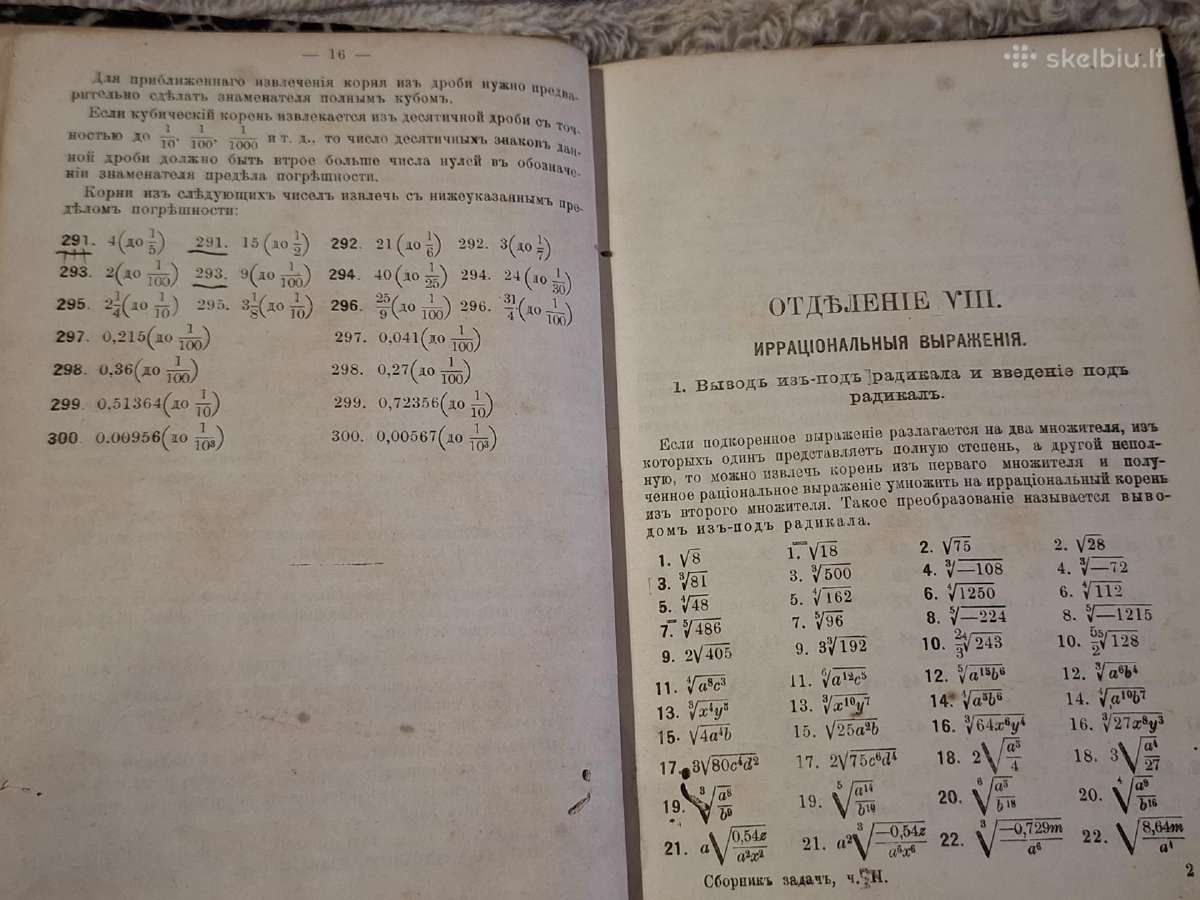 — 16 —
Для приближеннаго извлеченія корня изъ дроби нужно предва-
рительно сдѣлать знаменателя полнымъ кубомъ.
Если кубическій корень извлекается изъ десятичной дроби съ точ-
ностью до 1/10, 1/100, 1/1000 и т. д., то число десятичныхъ знаковъ дан-
ной дроби должно быть втрое больше числа нулей въ обозначе-
ніи знаменателя предѣла погрѣшности.
Корни изъ слѣдующихъ чиселъ извлечь съ нижеуказаннымъ пре-
дѣломъ погрѣшности:
291. 4(до 1/5) 291. 15(до 1/2) 292. 21(до 1/6) 292. 3(до 1/7)
293. 2(до 1/100) 293. 9(до 1/100) 294. 40(до 1/25) 294. 24(до 1/30)
295. 2 1/4(до 1/10) 295. 3 1/8(до 1/10) 296. 25/9(до 1/100) 296. 31/4(до 1/100)
297. 0,215(до 1/100) 297. 0,041(до 1/100)
298. 0,36(до 1/100) 298. 0,27(до 1/100)
299. 0,51364(до 1/10) 299. 0,72356(до 1/10)
300. 0.00956(до 1/10³) 300. 0,00567(до 1/10³)
skelbiu.lt
ОТДѢЛЕНІЕ VIII.
ИРРАЦІОНАЛЬНЫЯ ВЫРАЖЕНІЯ.
1. Выводъ изъ-подъ радикала и введеніе подъ
радикалъ.
Если подкоренное выраженіе разлагается на два множителя, изъ
которыхъ одинъ представляетъ полную степень, а другой непол-
ную, то можно извлечь корень изъ перваго множителя и полу-
ченное раціональное выраженіе умножить на ирраціональный корень
изъ второго множителя. Такое преобразованіе называется выво-
домъ изъ-подъ радикала.
1. √8 1. √18 2. √75 2. √28
3. ∛81 3. ∛500 4. ∛—108 4. ∛—72
5. ∜48 5. ∜162 6. ∜1250 6. ∜112
7. ⁵√486 7. ⁵√96 8. ⁵√—224 8. ⁵√—1215
9. 2√405 9. 3∛192 10. 2/3∜243 10. 5/2⁵√128
11. ∜a⁸c³ 11. ⁶√a¹²c⁵ 12. ⁵√a¹⁵b⁶ 12. ∛a⁶b⁴
13. ∛x⁴y⁵ 13. ∛x¹⁰y⁷ 14. ∜a⁵b⁶ 14. ∜a¹⁰b⁷
15. √4a⁴b 15. √25a²b 16. ∛64x⁶y⁴ 16. ∛27x⁸y³
17. 3√80c⁴d² 17. 2√75c⁶d⁴ 18. 2√a³/4 18. 3√a⁴/27
19. ∛a⁸/b⁹ 19. ⁵√a¹⁴/b¹⁰ 20. ⁶√a⁵/b¹⁸ 20. ∜a⁹/b¹⁶
21. a√0,54z/a²x² 21. a²∛—0,54z/a⁵x⁶ 22. ∛—0,729m/a⁶ 22. √8,64m/a⁴
Сборникъ задачъ, ч. II. 2